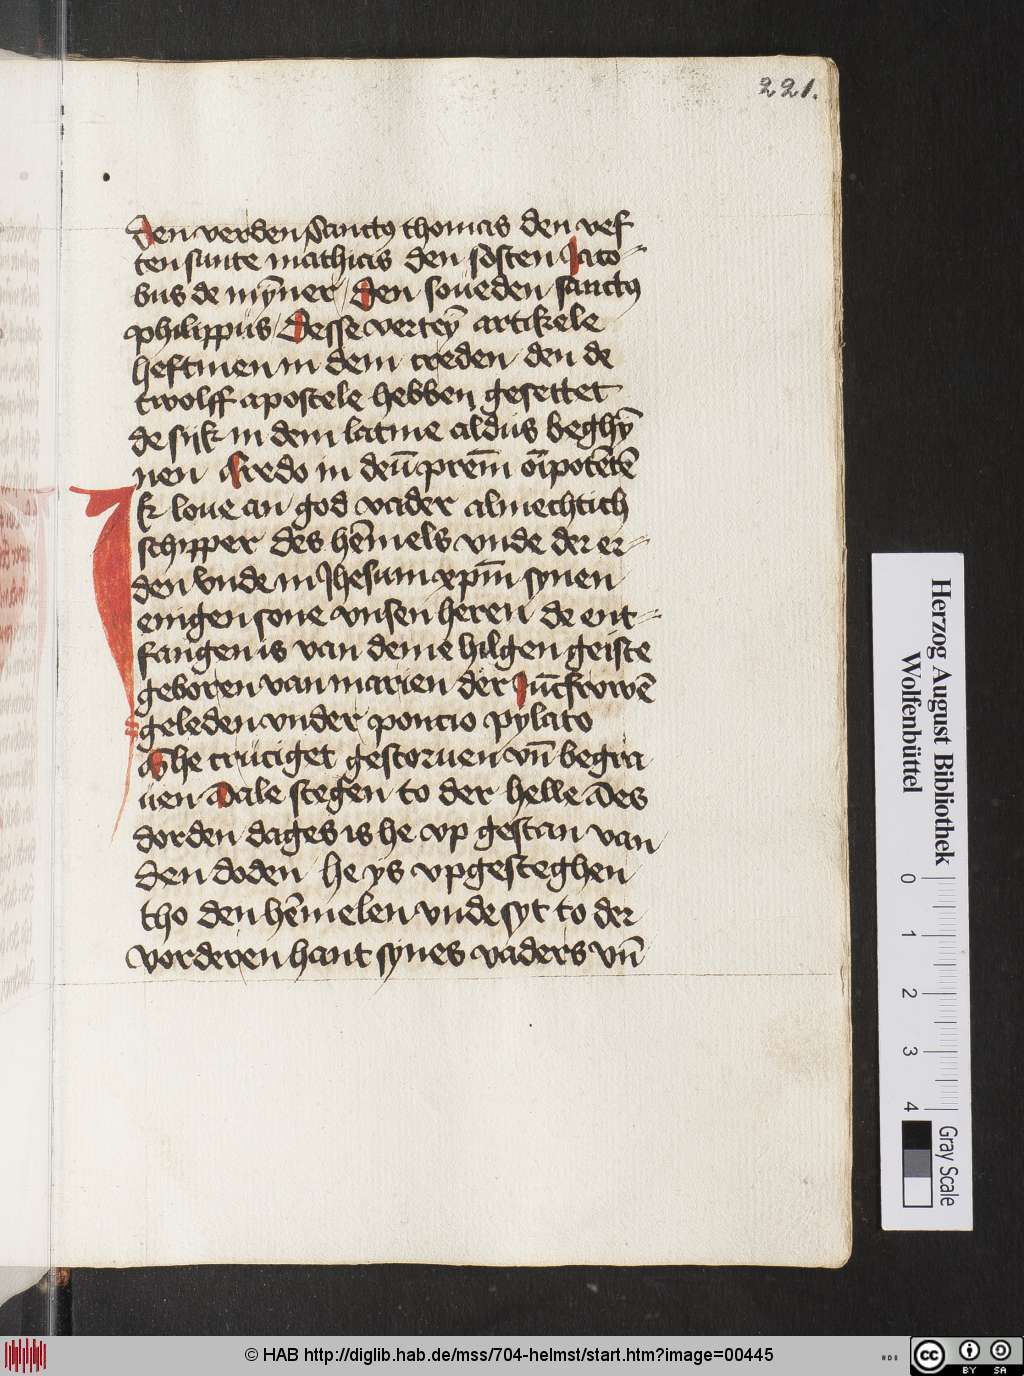 221.
Den verden Sanctus thomas den vef
ten sunte mathias den sosten Jaco-
bus de mÿner / Den soueden sanctus
philippus / Desse verteÿ artikele
heftmen in dem creden den de
twolff apostele hebben gesettet
de sijk in dem latine aldus beghÿ
nen Credo in deū prem̄ oīpotētē
Ik loue an god vader almechtich
schipper des hēmels vnde der er-
den vnde in Jhesum xp̄m synen
enigen sone vnsen heren de ent-
fangen is van deme hilgen geiste
geboren van marien der Jūcfrowē
geleden vnder poncio pylato
An̄he cruciget gestoruen vn̄ begra
uen Dale stegen to der helle Des
dorden dages is he vp gestan van
den doden he ys vpgesteghen
tho den hēmelen vnde syt to der
vorderen hant synes vaders vn̄
Herzog August Bibliothek
Wolfenbüttel
0 1 2 3 4
Gray Scale
© HAB http://diglib.hab.de/mss/704-helmst/start.htm?image=00445
cc BY SA